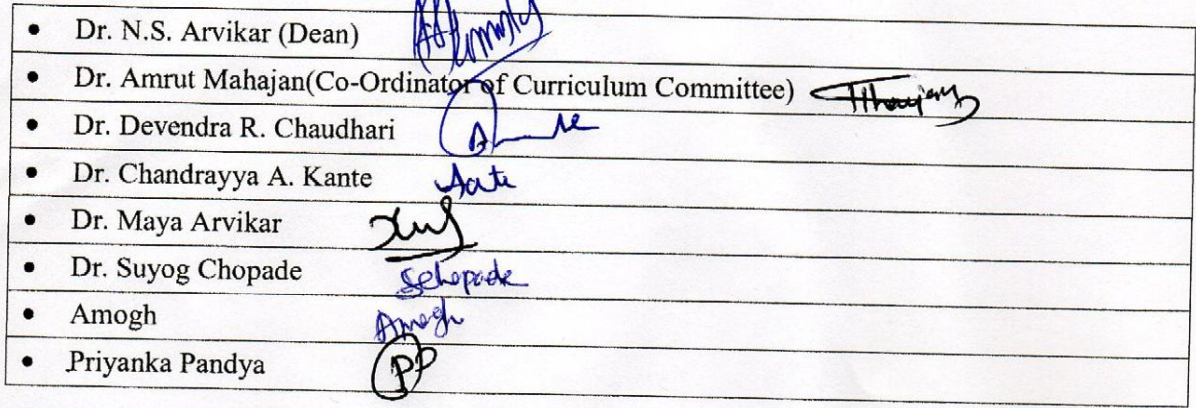 • Dr. N.S. Arvikar (Dean)
• Dr. Amrut Mahajan(Co-Ordinator of Curriculum Committee)
• Dr. Devendra R. Chaudhari
• Dr. Chandrayya A. Kante
• Dr. Maya Arvikar
• Dr. Suyog Chopade Schopade
• Amogh Amogh
• Priyanka Pandya PP